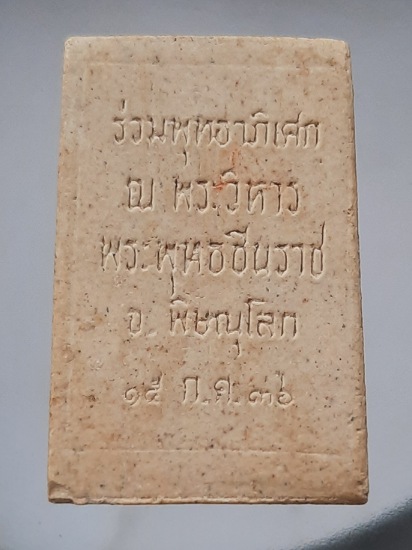 ร่วมพุทธาภิเศก
ณ พระวิหาร
พระพุทธชินราช
จ. พิษณุโลก
๑๕ ก.ค. ๓๖